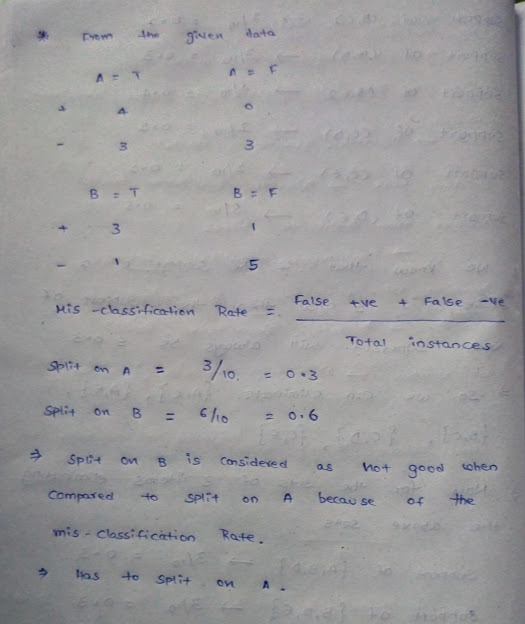 * From the given data
A = T A = F
+ 4 0
- 3 3
B = T B = F
+ 3 1
- 1 5
Mis-classification Rate = False +ve + False -ve
Total instances
Split on A = 3/10 = 0.3
Split on B = 6/10 = 0.6
⇒ Split on B is Considered as not good when
Compared to split on A because of the
mis-classification Rate.
⇒ Has to split on A.